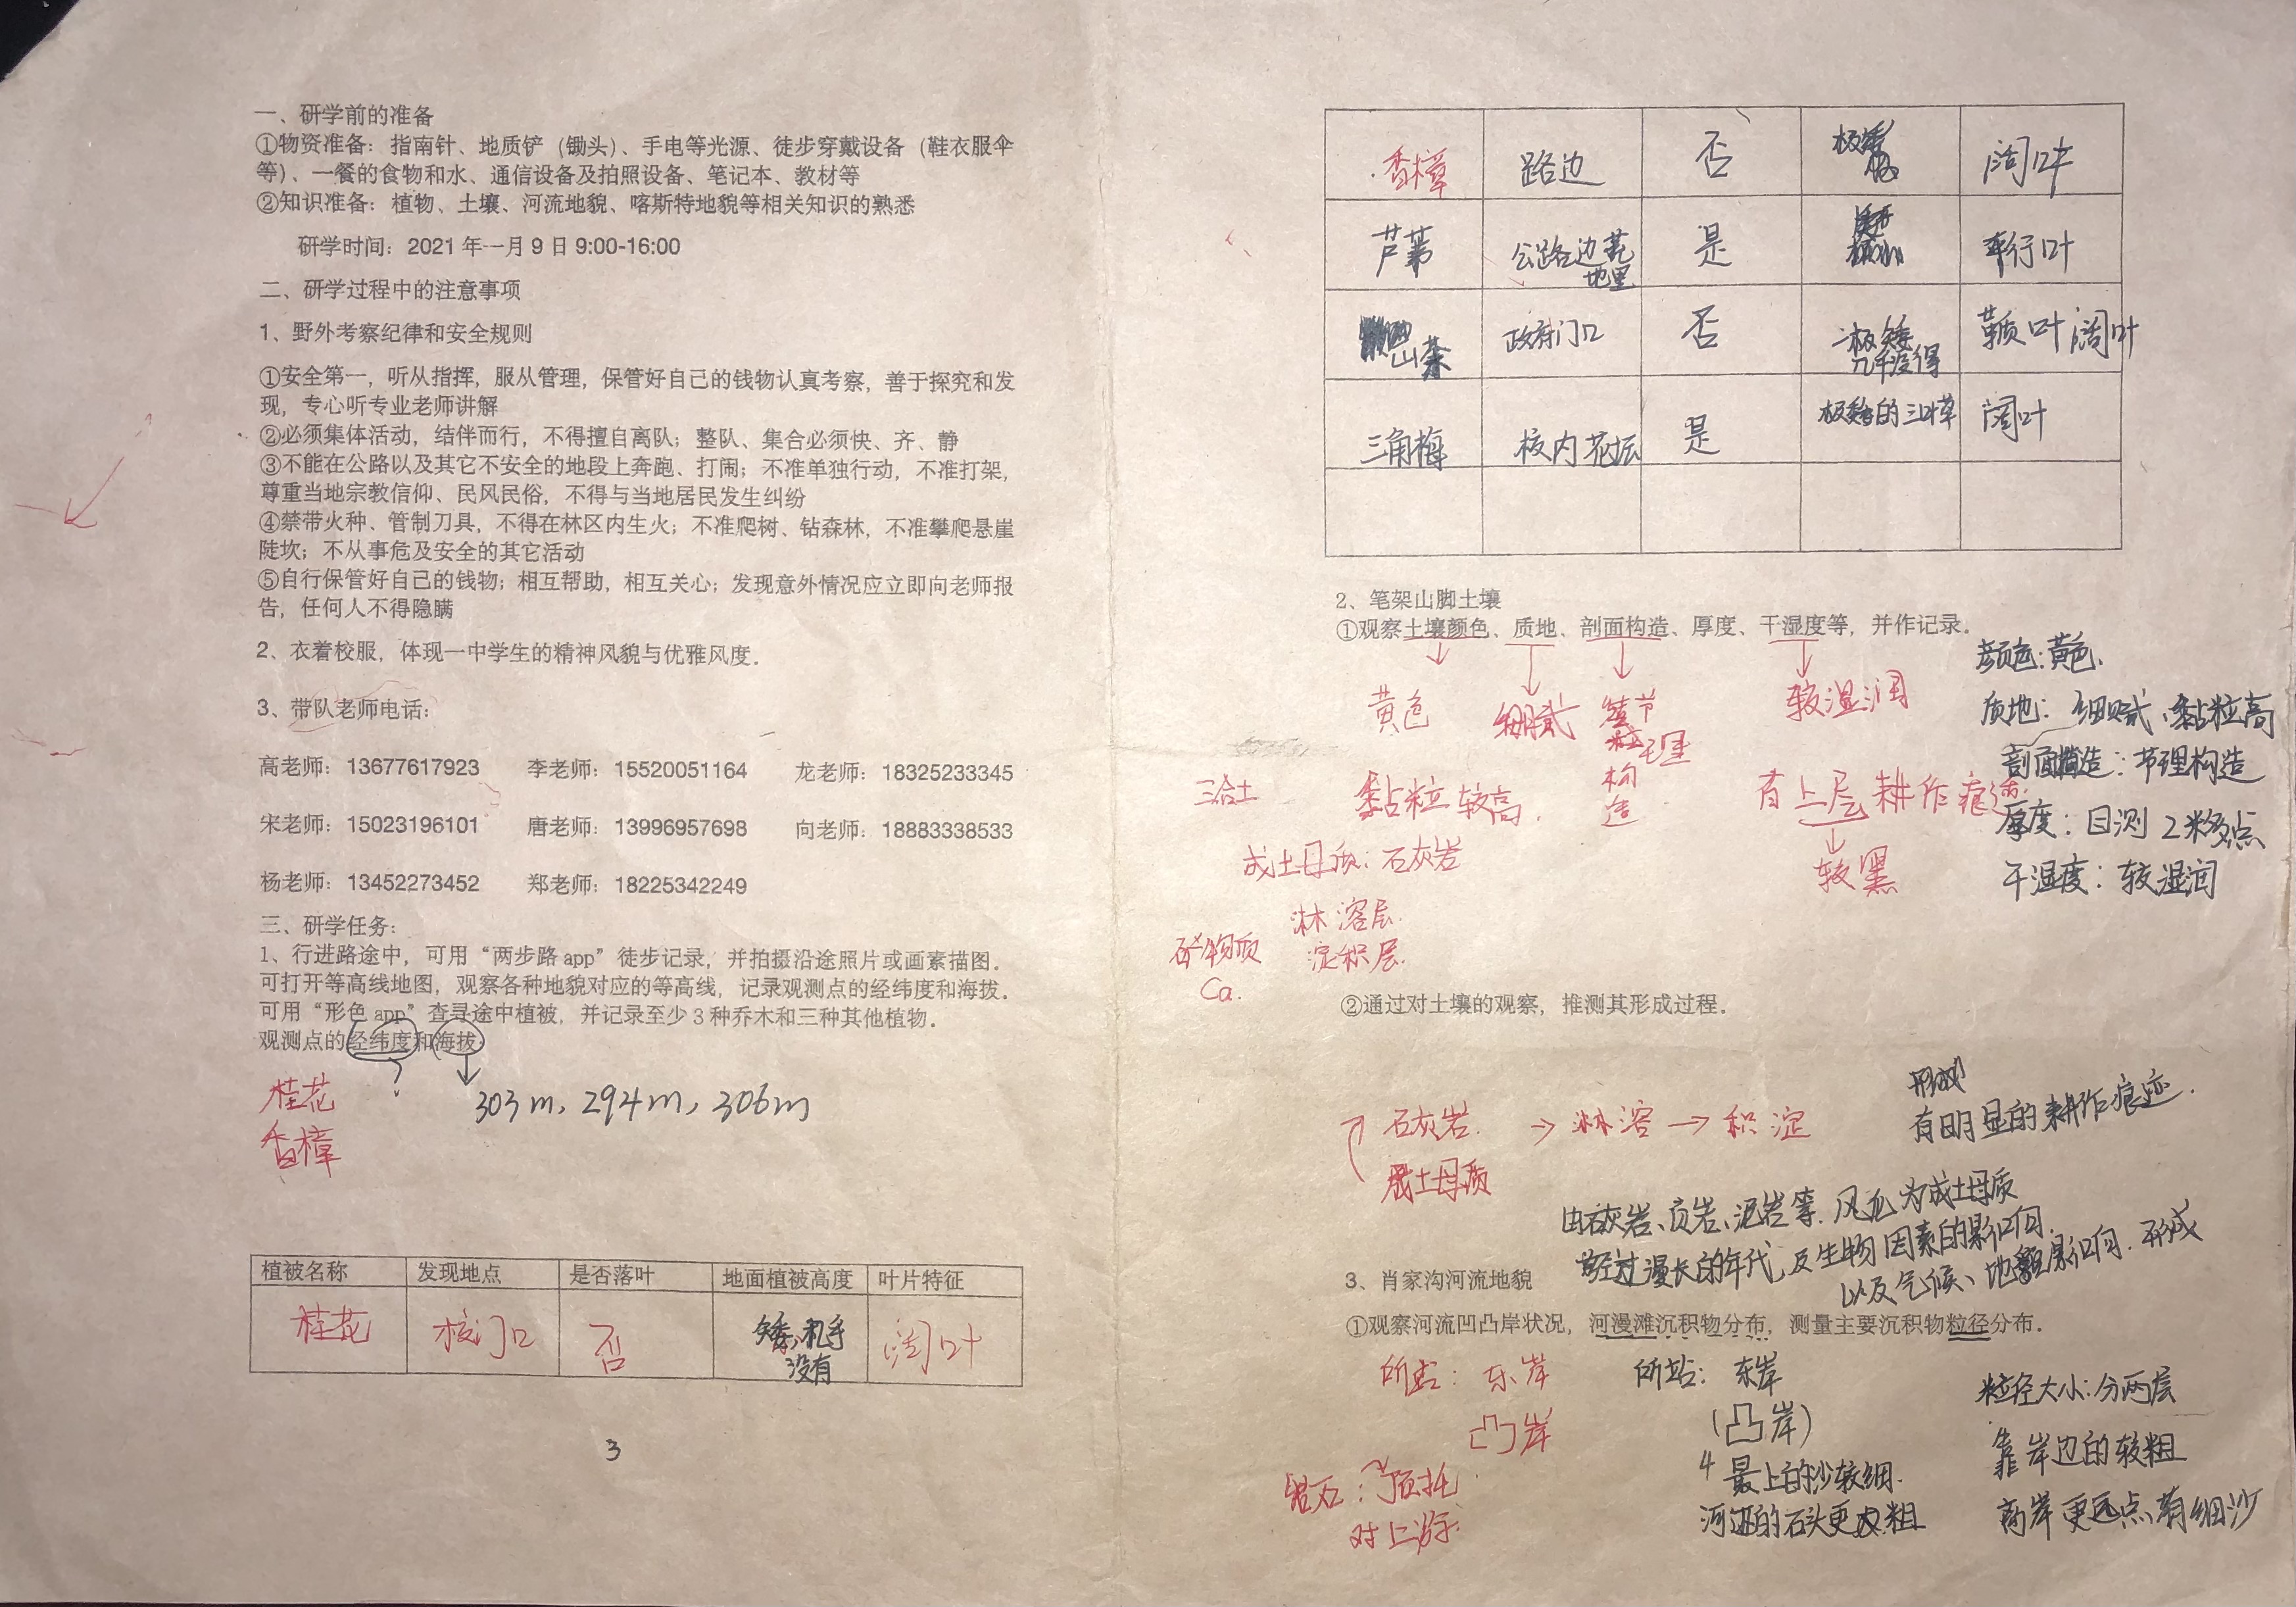 一、研学前的准备
①物资准备：指南针、地质铲（锄头）、手电等光源、徒步穿戴设备（鞋衣服伞
等）、一餐的食物和水、通信设备及拍照设备、笔记本、教材等
②知识准备：植物、土壤、河流地貌、喀斯特地貌等相关知识的熟悉
研学时间：2021年一月9日9:00-16:00
二、研学过程中的注意事项
1、野外考察纪律和安全规则
①安全第一，听从指挥，服从管理，保管好自己的钱物认真考察，善于探究和发
现，专心听专业老师讲解
②必须集体活动，结伴而行，不得擅自离队；整队、集合必须快、齐、静
③不能在公路以及其它不安全的地段上奔跑、打闹；不准单独行动，不准打架，
尊重当地宗教信仰、民风民俗，不得与当地居民发生纠纷
④禁带火种、管制刀具，不得在林区内生火；不准爬树、钻森林，不准攀爬悬崖
陡坎；不从事危及安全的其它活动
⑤自行保管好自己的钱物；相互帮助，相互关心；发现意外情况应立即向老师报
告，任何人不得隐瞒
2、衣着校服，体现一中学生的精神风貌与优雅风度.
3、带队老师电话：
高老师：13677617923 李老师：15520051164 龙老师：18325233345
宋老师：15023196101 唐老师：13996957698 向老师：18883338533
杨老师：13452273452 郑老师：18225342249
三、研学任务：
1、行进路途中，可用“两步路app”徒步记录，并拍摄沿途照片或画素描图.
可打开等高线地图，观察各种地貌对应的等高线，记录观测点的经纬度和海拔.
可用“形色app”查寻途中植被，并记录至少3种乔木和三种其他植物.
观测点的经纬度和海拔.
?
303m, 294m, 306m
桂花
香樟
植被名称 发现地点 是否落叶 地面植被高度 叶片特征
桂花 校门口 否 矮、几乎 阔叶
没有
3
香樟 路边 否 极矮 阔叶
芦苇 公路边花 是 平行叶
地里
山茶 政府门口 否 极矮 革质叶 阔叶
几乎没得
三角梅 校内花坛 是 的三叶草 阔叶
2、笔架山脚土壤
①观察土壤颜色、质地、剖面构造、厚度、干湿度等，并作记录.
黄色 细腻 节 较湿润
理
构
造
三合土 黏粒较高. 有上层耕作痕迹
较黑
成土母质：石灰岩
淋溶层.
矿物质 淀积层.
Ca.
颜色：黄色.
质地：细腻、黏粒高
剖面构造：节理构造
厚度：目测2米多点
干湿度：较湿润
②通过对土壤的观察，推测其形成过程.
石灰岩. → 淋溶 → 积淀
成土母质
有明显的耕作痕迹.
由石灰岩、页岩、泥岩等.风化为成土母质
经过漫长的年代，及生物因素的影响.
以及气候、地貌影响.形成
3、肖家沟河流地貌
①观察河流凹凸岸状况，河漫滩沉积物分布，测量主要沉积物粒径分布.
所占：东岸
凸岸
顶托
对上游
所站：东岸
(凸岸)
最上的沙较细.
河边的石头更粗
粒径大小：分两层
靠岸边的较粗
离岸更远点有细沙